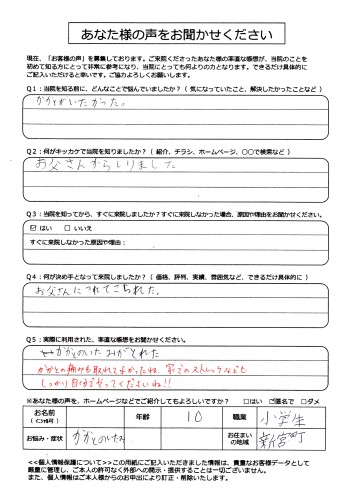 あなた様の声をお聞かせください
現在、「お客様の声」を募集しております。ご来院くださったあなた様の率直な感想が、当院のことを
初めて知る方にとって非常に参考になり、当院にとっても何よりの力となります。できるだけ具体的に
ご記入いただけると幸いです。ご協力よろしくお願いします。
Q1：当院を知る前に、どんなことで悩んでいましたか？（気になっていたこと、解決したかったことなど）
かかとがいたかった。
Q2：何がキッカケで当院を知りましたか？（紹介、チラシ、ホームページ、〇〇で検索など）
お父さんからしりました
Q3：当院を知ってから、すぐに来院しましたか？すぐに来院しなかった場合、原因や理由をお聞かせください。
☑ はい □ いいえ
すぐに来院しなかった原因や理由：
Q4：何が決め手となって来院しましたか？（価格、評判、実績、雰囲気など、できるだけ具体的に）
お父さんにつれてこられた。
Q5：実際に利用された、率直な感想をお聞かせください。
かかとのいたみがとれた
かかとの痛みも取れてよかったね。家でのストレッチなども
しっかり自分でやってくださいね!!
※あなた様の声を、ホームページなどでご紹介してもよろしいですか？ □ OK ☑匿名で □ダメ
お名前
（イニシャル可）
年齢
10
職業
小学生
お悩み・症状
かかとのいたみ
お住まい
の地域
新宮町
<<個人情報保護について>>この用紙にご記入いただきました情報は、貴重なお客様データとして
厳重に管理し、ご本人の許可なく外部への開示・提供することは一切ございません。
また、個人情報はご本人様からのお申出により訂正・削除いたします。